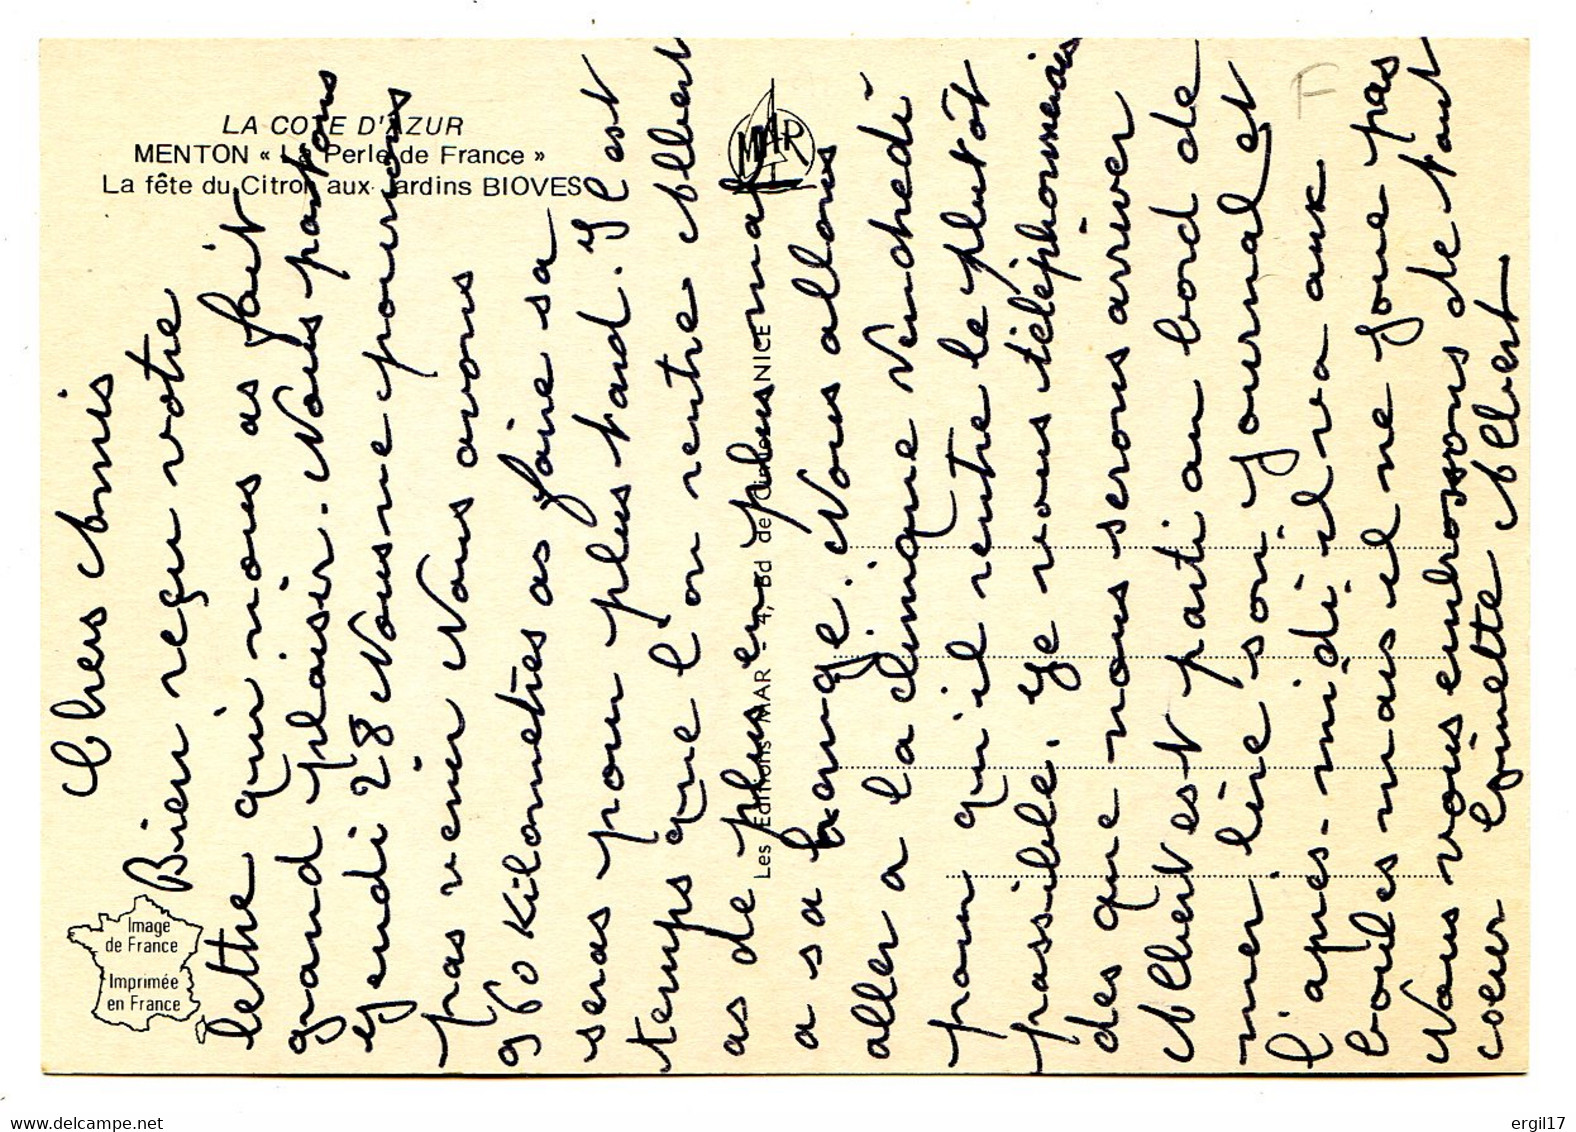 LA COTE D'AZUR
MENTON « La Perle de France »
La fête du Citron aux Jardins BIOVES
MAR
Image
de France
Imprimée
en France
Les Editions MAR - 4, Bd de NICE
F
Chers Amis
Bien reçu votre
lettre qui nous as fait
grand plaisir. Nous partons
Jeudi 28 Nous ne pourrons
pas venir Nous avons
960 Kilomètres as faire sa
seras pour plus tard. Il est
temps que l'on rentre Albert
as de plus en plus mal
a sa hanche. Nous allons
aller a la clinique Vendredi
pour qu'il rentre le plutôt
possible. Je vous téléphonerais
des que nous serons arriver
Albert est parti au bord de
mer lire son Journal et
l'apres-midi il va aux
boules mais il ne joue pas
Nous vous embrassons de tout
coeur Ginette Albert
ergil17